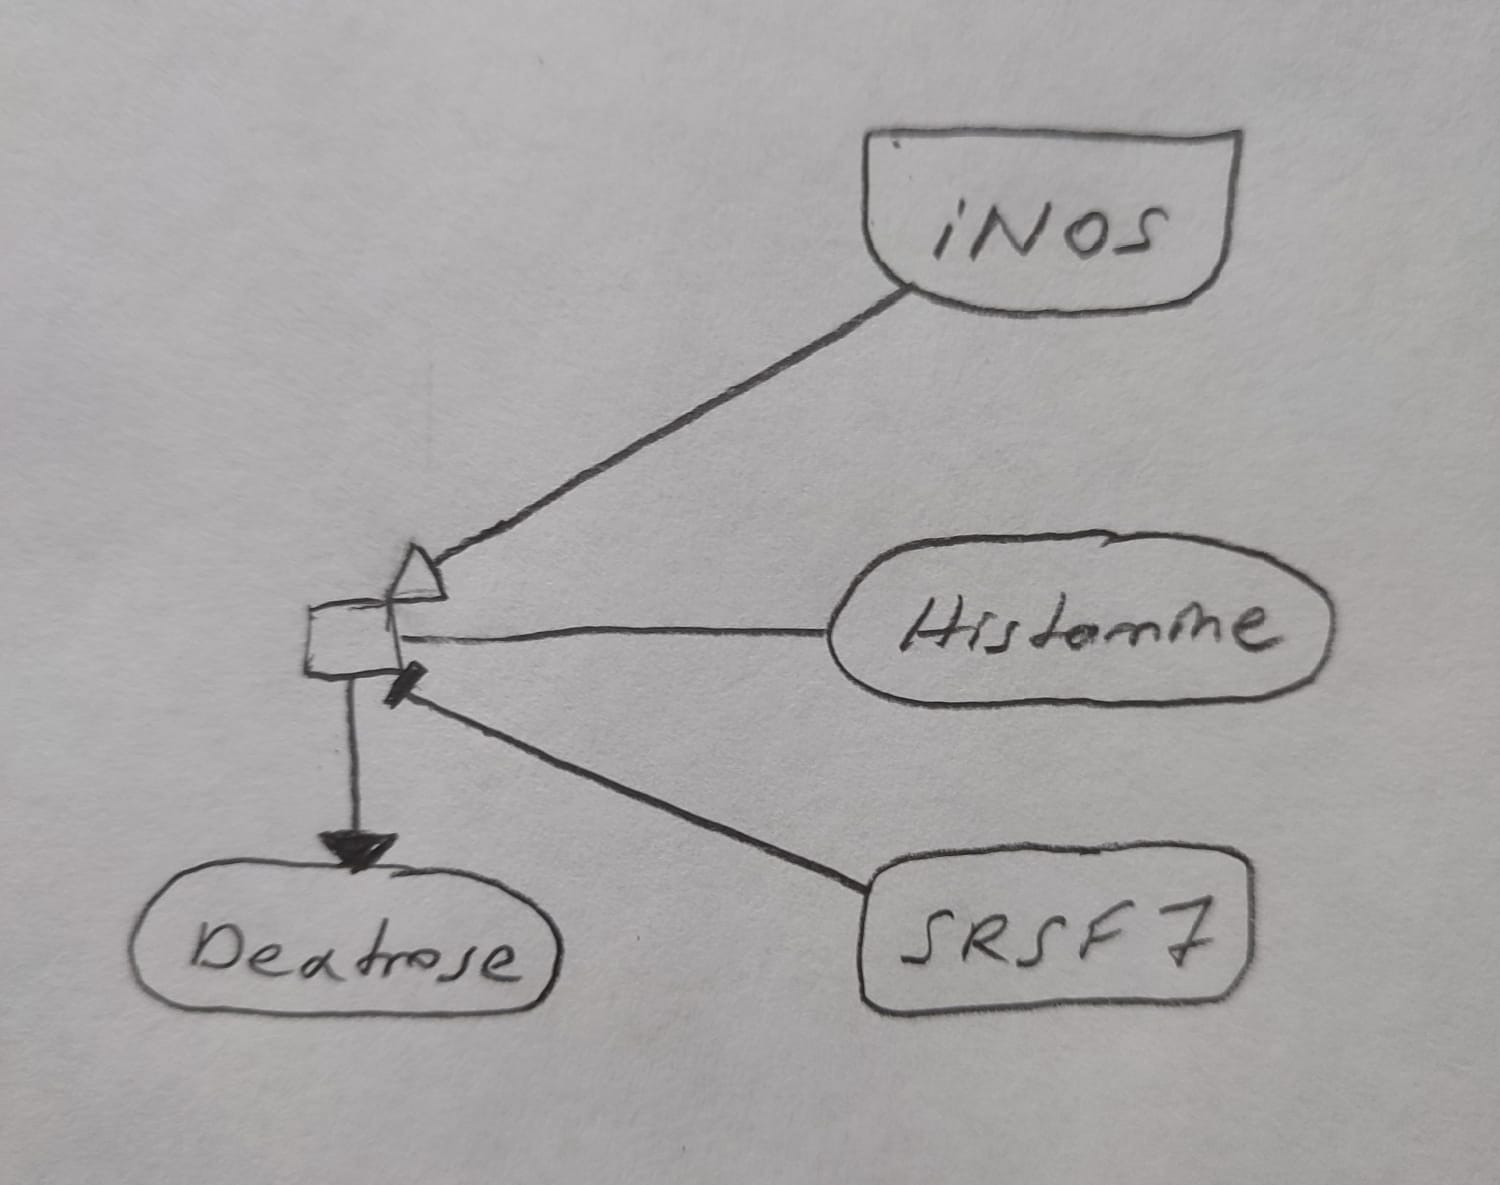 iNOS
Histamine
Dextrose
SRSF7